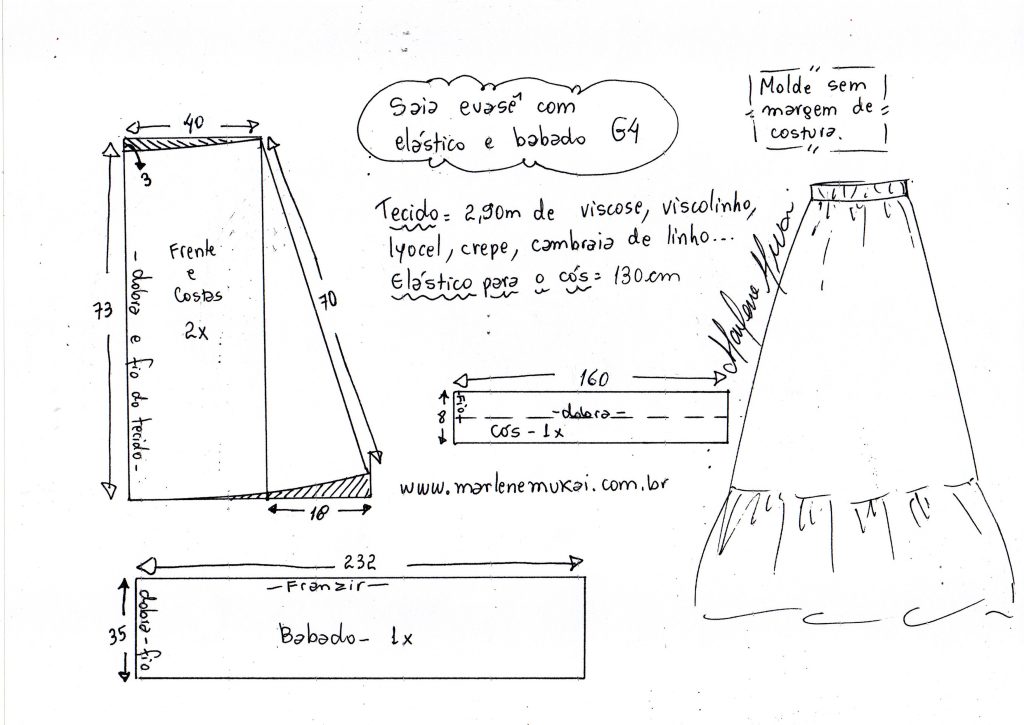 Saia evasê com
elástico e babado G4
Molde sem
margem de
costura.
40
3
73
70
Frente
e
Costas
2x
-dobra e fio do tecido-
18
Tecido = 2,90m de viscose, viscolinho,
lyocel, crepe, cambraia de linho...
Elástico para o cós = 130cm
Marlene Mukai
160
8
fio
-dobra=
Cós - 1x
www.marlenemukai.com.br
232
-Franzir-
35
dobra-fio
Babado- 1x